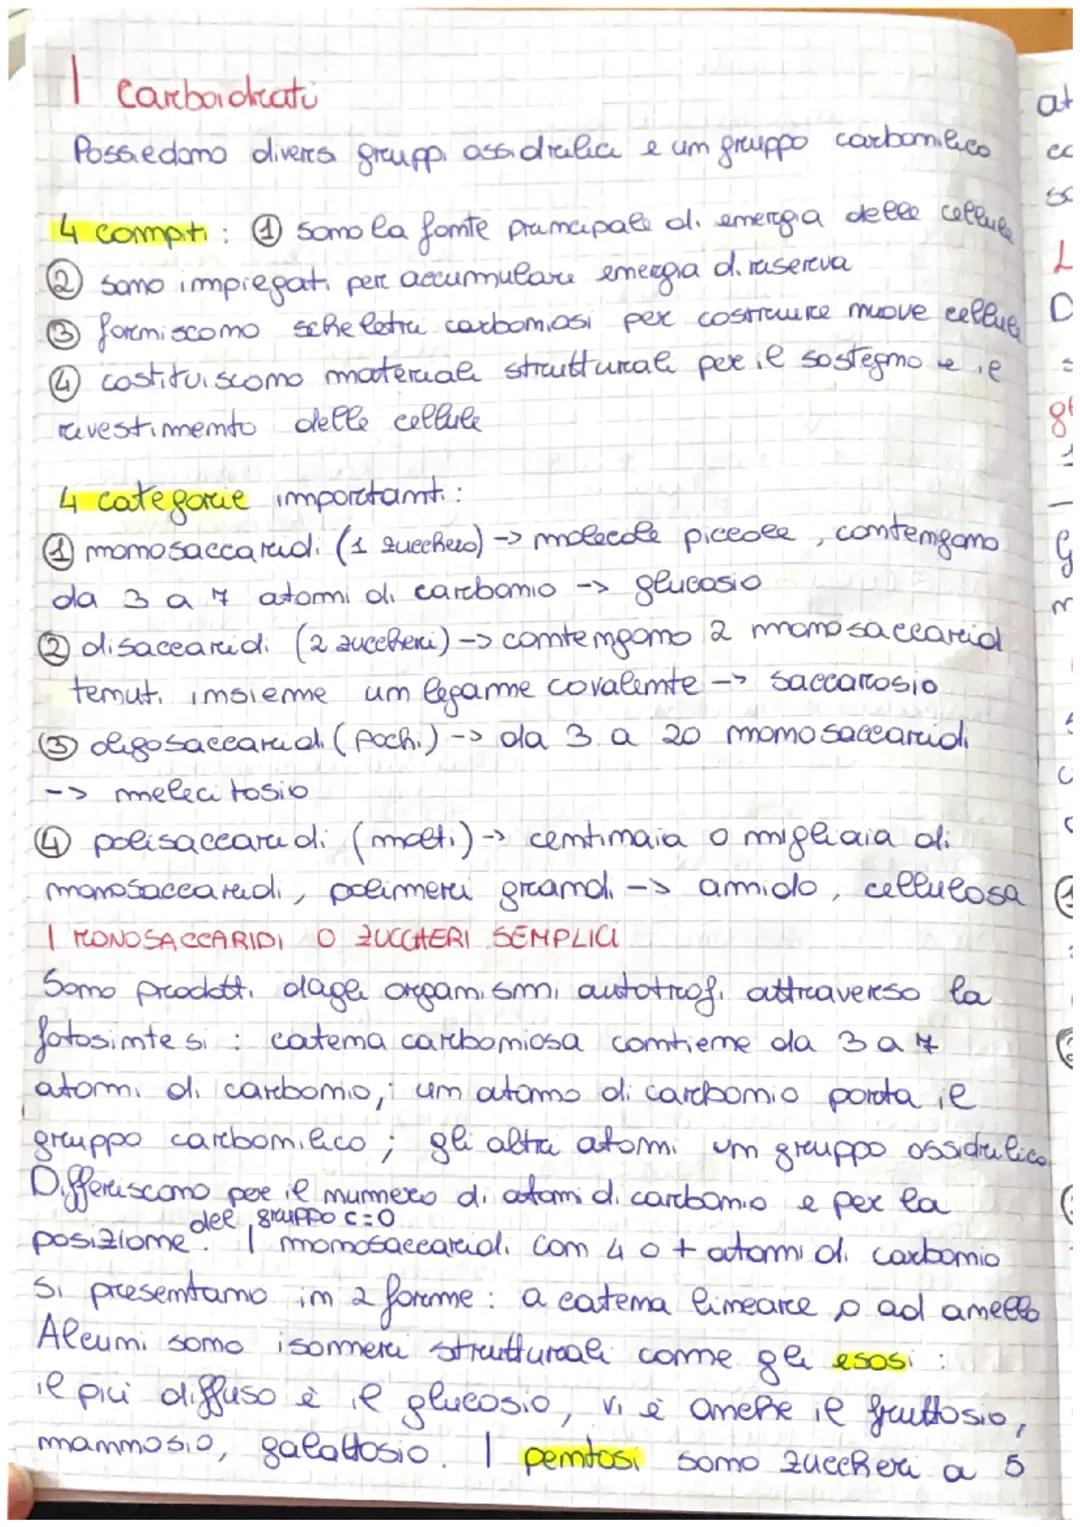 I carboidrati
Possiedono diversi gruppi ossidrilici e un gruppo carbonilico
4 compiti: ① sono la fonte principale di energia delle cellule
② sono impiegati per accumulare energia di riserva
③ forniscono scheletri carboniosi per costruire nuove cellule
④ costituiscono materiali strutturali per il sostegno e il
rivestimento delle cellule
4 categorie importanti:
① monosaccaridi (1 zucchero) -> molecole piccole, contengono
da 3 a 7 atomi di carbonio -> glucosio
② disaccaridi (2 zuccheri) -> contengono 2 monosaccarid
tenuti insieme un legame covalente -> saccarosio
③ oligosaccaridi (pochi) -> da 3 a 20 monosaccaridi
-> melecitosio
④ polisaccaridi (molti) -> centinaia o migliaia di
monosaccaridi, polimeri grandi -> amido, cellulosa
I MONOSACCARIDI O ZUCCHERI SEMPLICI
Sono prodotti dagli organismi autotrofi attraverso la
fotosintesi: catena carboniosa contiene da 3 a 7
atomi di carbonio; un atomo di carbonio porta il
gruppo carbonilico; gli altri atomi un gruppo ossidrilico
Differiscono per il numero di atomi di carbonio e per la
posizione del gruppo C=O. I monosaccaridi con 4 o + atomi di carbonio
si presentano in 2 forme: a catena lineare o ad anello
Alcuni sono isomeri strutturali come gli esosi:
il più diffuso è il glucosio, vi è anche il fruttosio,
mannosio, galattosio. I pentosi sono zuccheri a 5